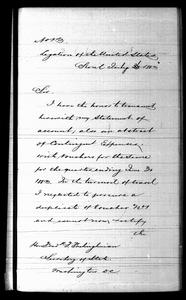 Legation of the United States,
Seoul July
Sir:
I have the honor to transmit
herewith my Statement of
account, also an abstract
of Contingent Expenses,
with Vouchers for the same
for the quarter ending June 30
In the turmoil of travel
I neglected to procure a
duplicate of voucher No 1
and cannot now certify
the
Secretary of State
Washington D.C.